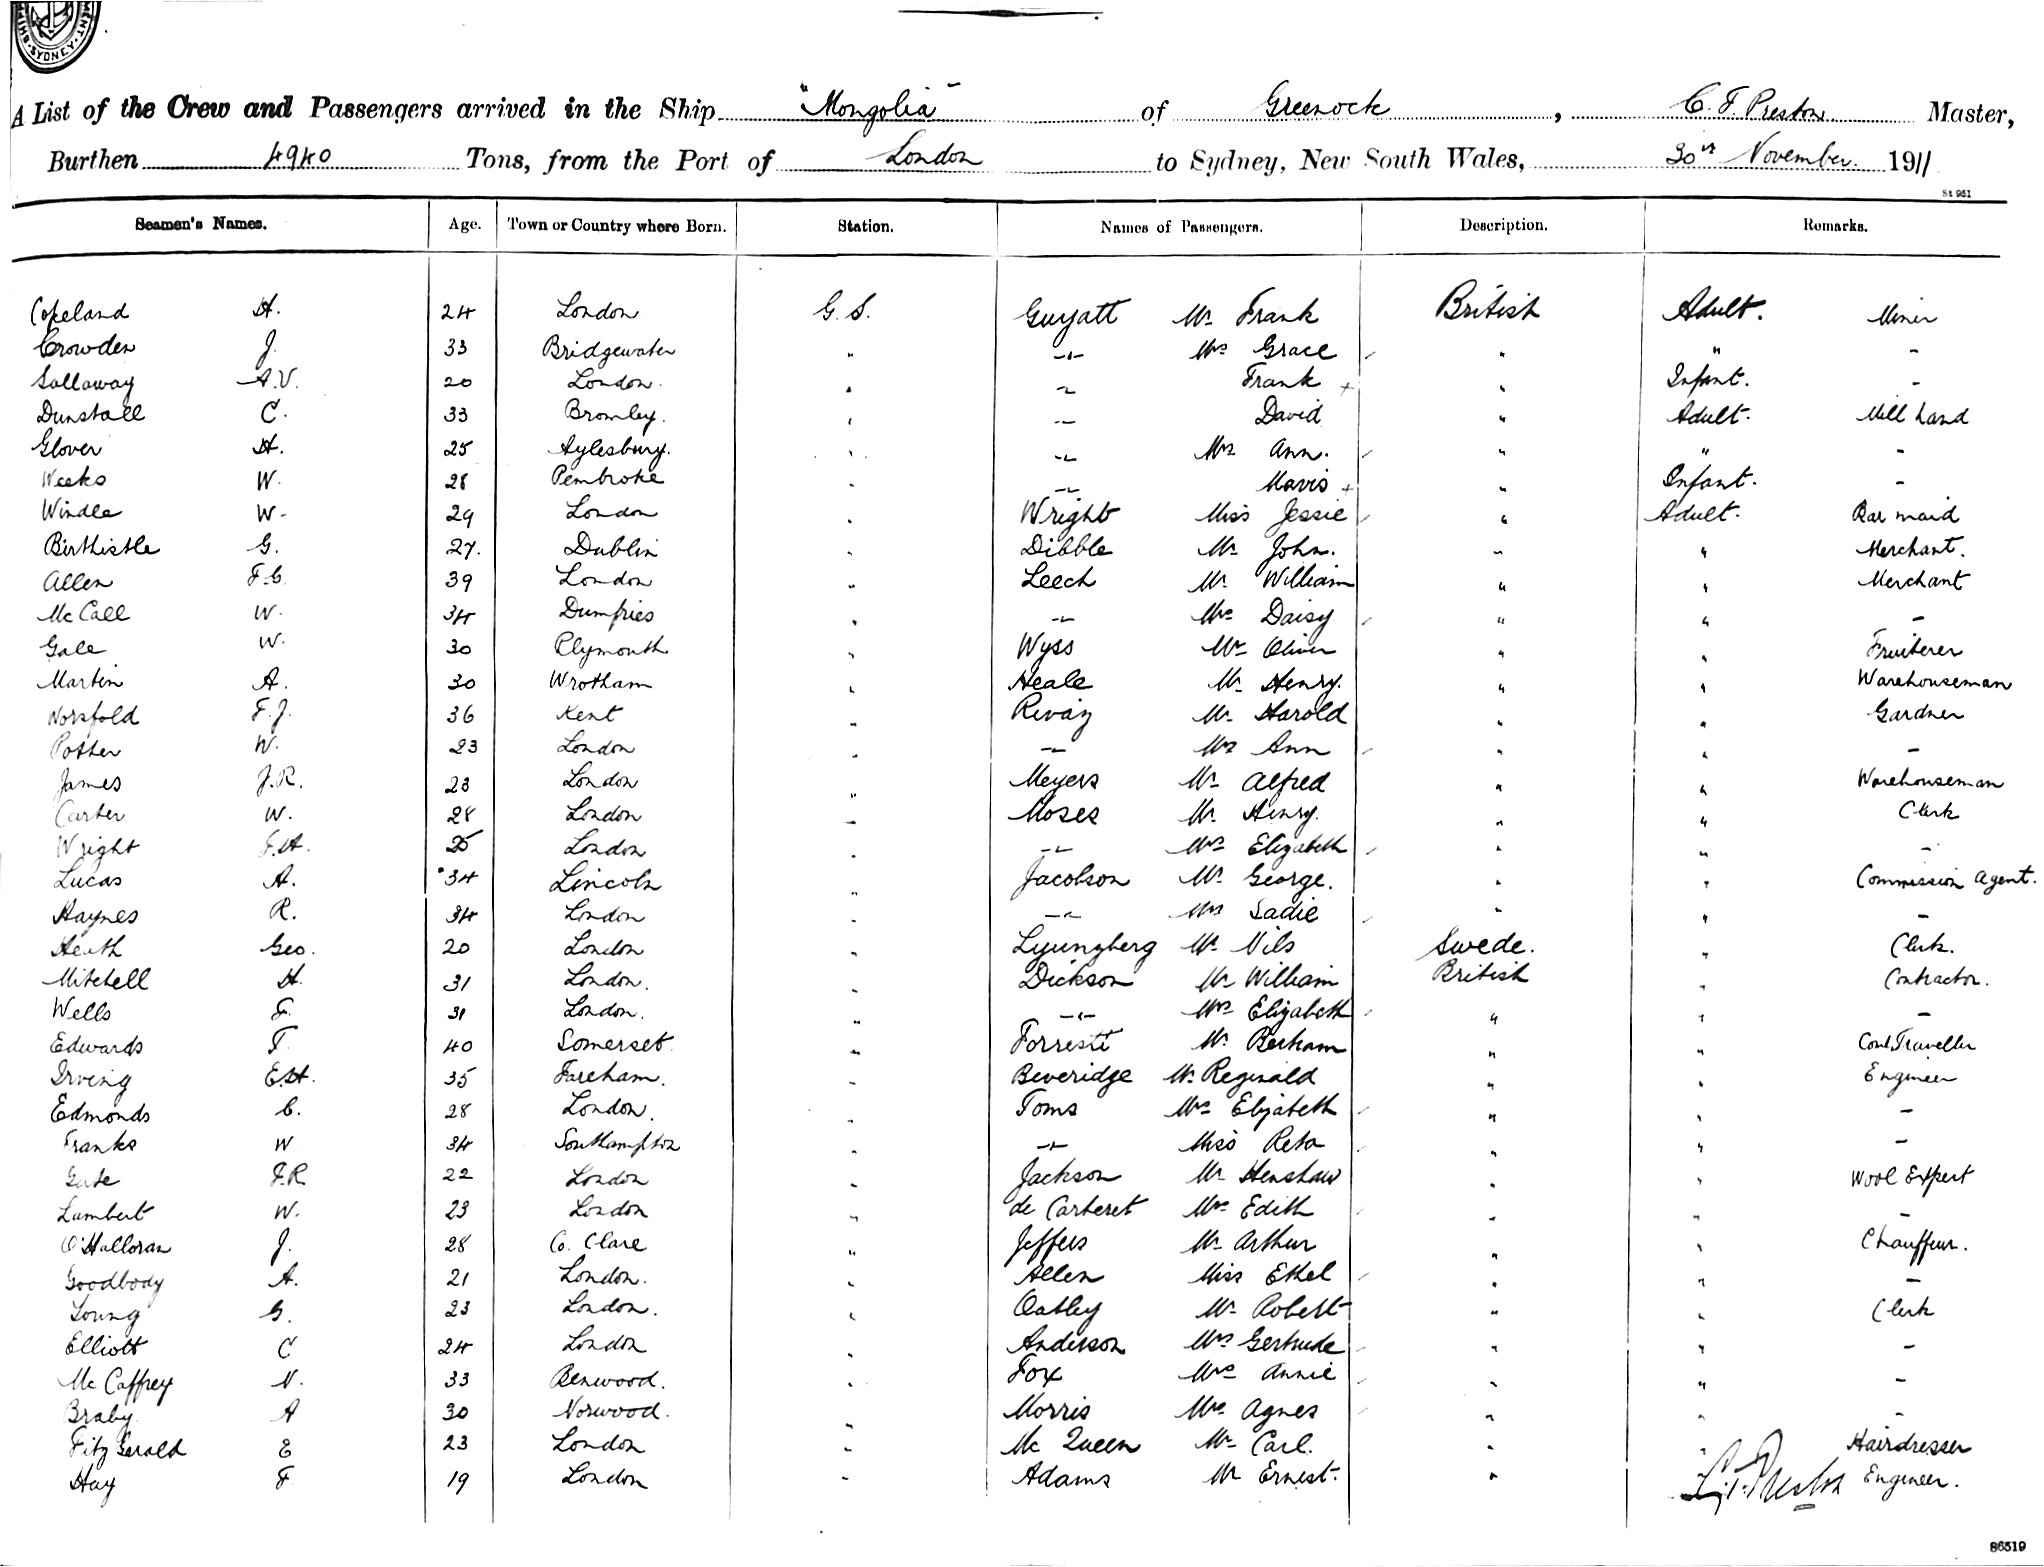 SYDNEY
A List of the Crew and Passengers arrived in the Ship "Mongolia" of Greenock, C. F. Preston Master,
Burthen 4940 Tons, from the Port of London to Sydney, New South Wales, 30th November. 1911
St 951
Seamen's Names. Age. Town or Country where Born. Station. Names of Passengers. Description. Remarks.
Copeland H. 24 London G. S. Guyatt Mr Frank British Adult. Miner
Crowden J. 33 Bridgewater " -"- Mrs Grace " " -
Sallaway A.V. 20 London. " " Frank + " Infant. -
Dunstall C. 33 Bromley. " " David " Adult. Mill hand
Glover H. 25 Aylesbury. " " Mrs Ann. " " -
Weeks W. 28 Pembroke " " Mavis + " Infant. -
Windle W. 29 London " Wright Miss Jessie " Adult. Bar maid
Birthistle G. 27. Dublin " Dibble Mr John. " " Merchant.
Allen F.G. 39 London " Leech Mr William " " Merchant
McCall W. 34 Dumfries " " Mrs Daisy " " -
Gale W. 30 Plymouth " Wyss Mr Oliver " " Fruiterer
Martin A. 30 Wrotham " Heale Mr Henry. " " Warehouseman
Worsfold F.J. 36 Kent " Mr Harold " " Gardner
Potter W. 23 London " " Mrs Ann " " -
James J.R. 23 London " Meyers Mr Alfred " " Warehouseman
Carter W. 28 London " Moses Mr Henry. " " Clerk
Wright F.H. 25 London " " Mrs Elizabeth " " -
Lucas A. 34 Lincoln " Jacobson Mr George. " " Commission Agent.
Haynes R. 34 London " " Mrs Sadie " " -
Heath Geo. 20 London " Lyungberg Mr Nils Swede. " Clerk.
Mitchell H. 31 London. " Dickson Mr William British " Contractor.
Wells F. 31 London. " " Mrs Elizabeth " " -
Edwards T. 40 Somerset. " Forrest Mr Bertram " " Coml Traveller
Irving E.H. 35 Fareham. " Beveridge Mr Reginald " " Engineer
Edmonds C. 28 London. " Toms Mrs Elizabeth " " -
Franks W 34 Southampton " " Miss Reta " " -
Gate J.R 22 London " Jackson Mr Henshaw " " Wool Expert
Lambert W. 23 London " de Carteret Mrs Edith " " -
O'Halloran J. 28 Co. Clare " Jeffers Mr Arthur " " Chauffeur.
Goodbody A. 21 London. " Allen Miss Ethel " " -
Young G. 23 London. " Oatley Mr Robert " " Clerk
Elliott C 24 London " Anderson Mrs Gertrude " " -
McCaffrey N. 33 Benwood. " Fox Mrs Annie " " -
Braby A 30 Norwood. " Morris Mrs Agnes " " -
FitzGerald E 23 London " McQueen Mr Carl. " " Hairdresser
Hay F 19 London " Adams Mr Ernest. " Engineer.
C. F. Preston
86519